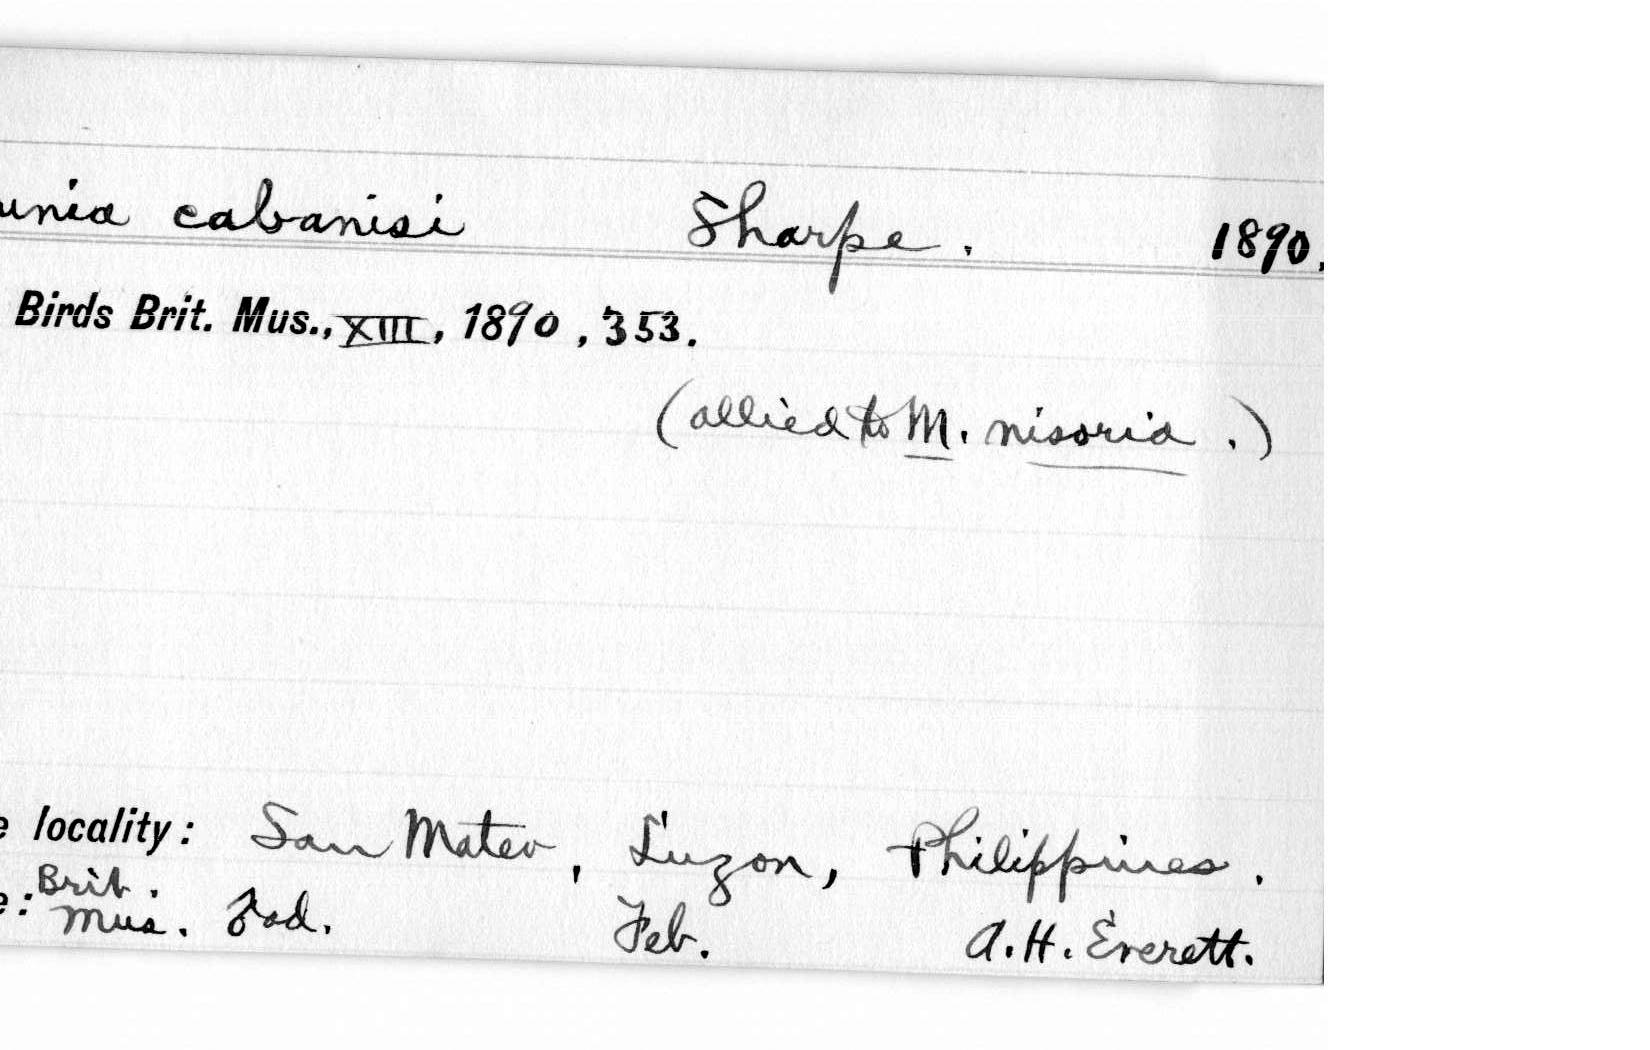 unia cabanisi Sharpe. 1890.
Birds Brit. Mus., XIII, 1890, 353.
(allied to M. nisoria.)
e locality: San Mateo, Luzon, Philippines.
e: Brit. Mus. ad. Feb. A. H. Everett.